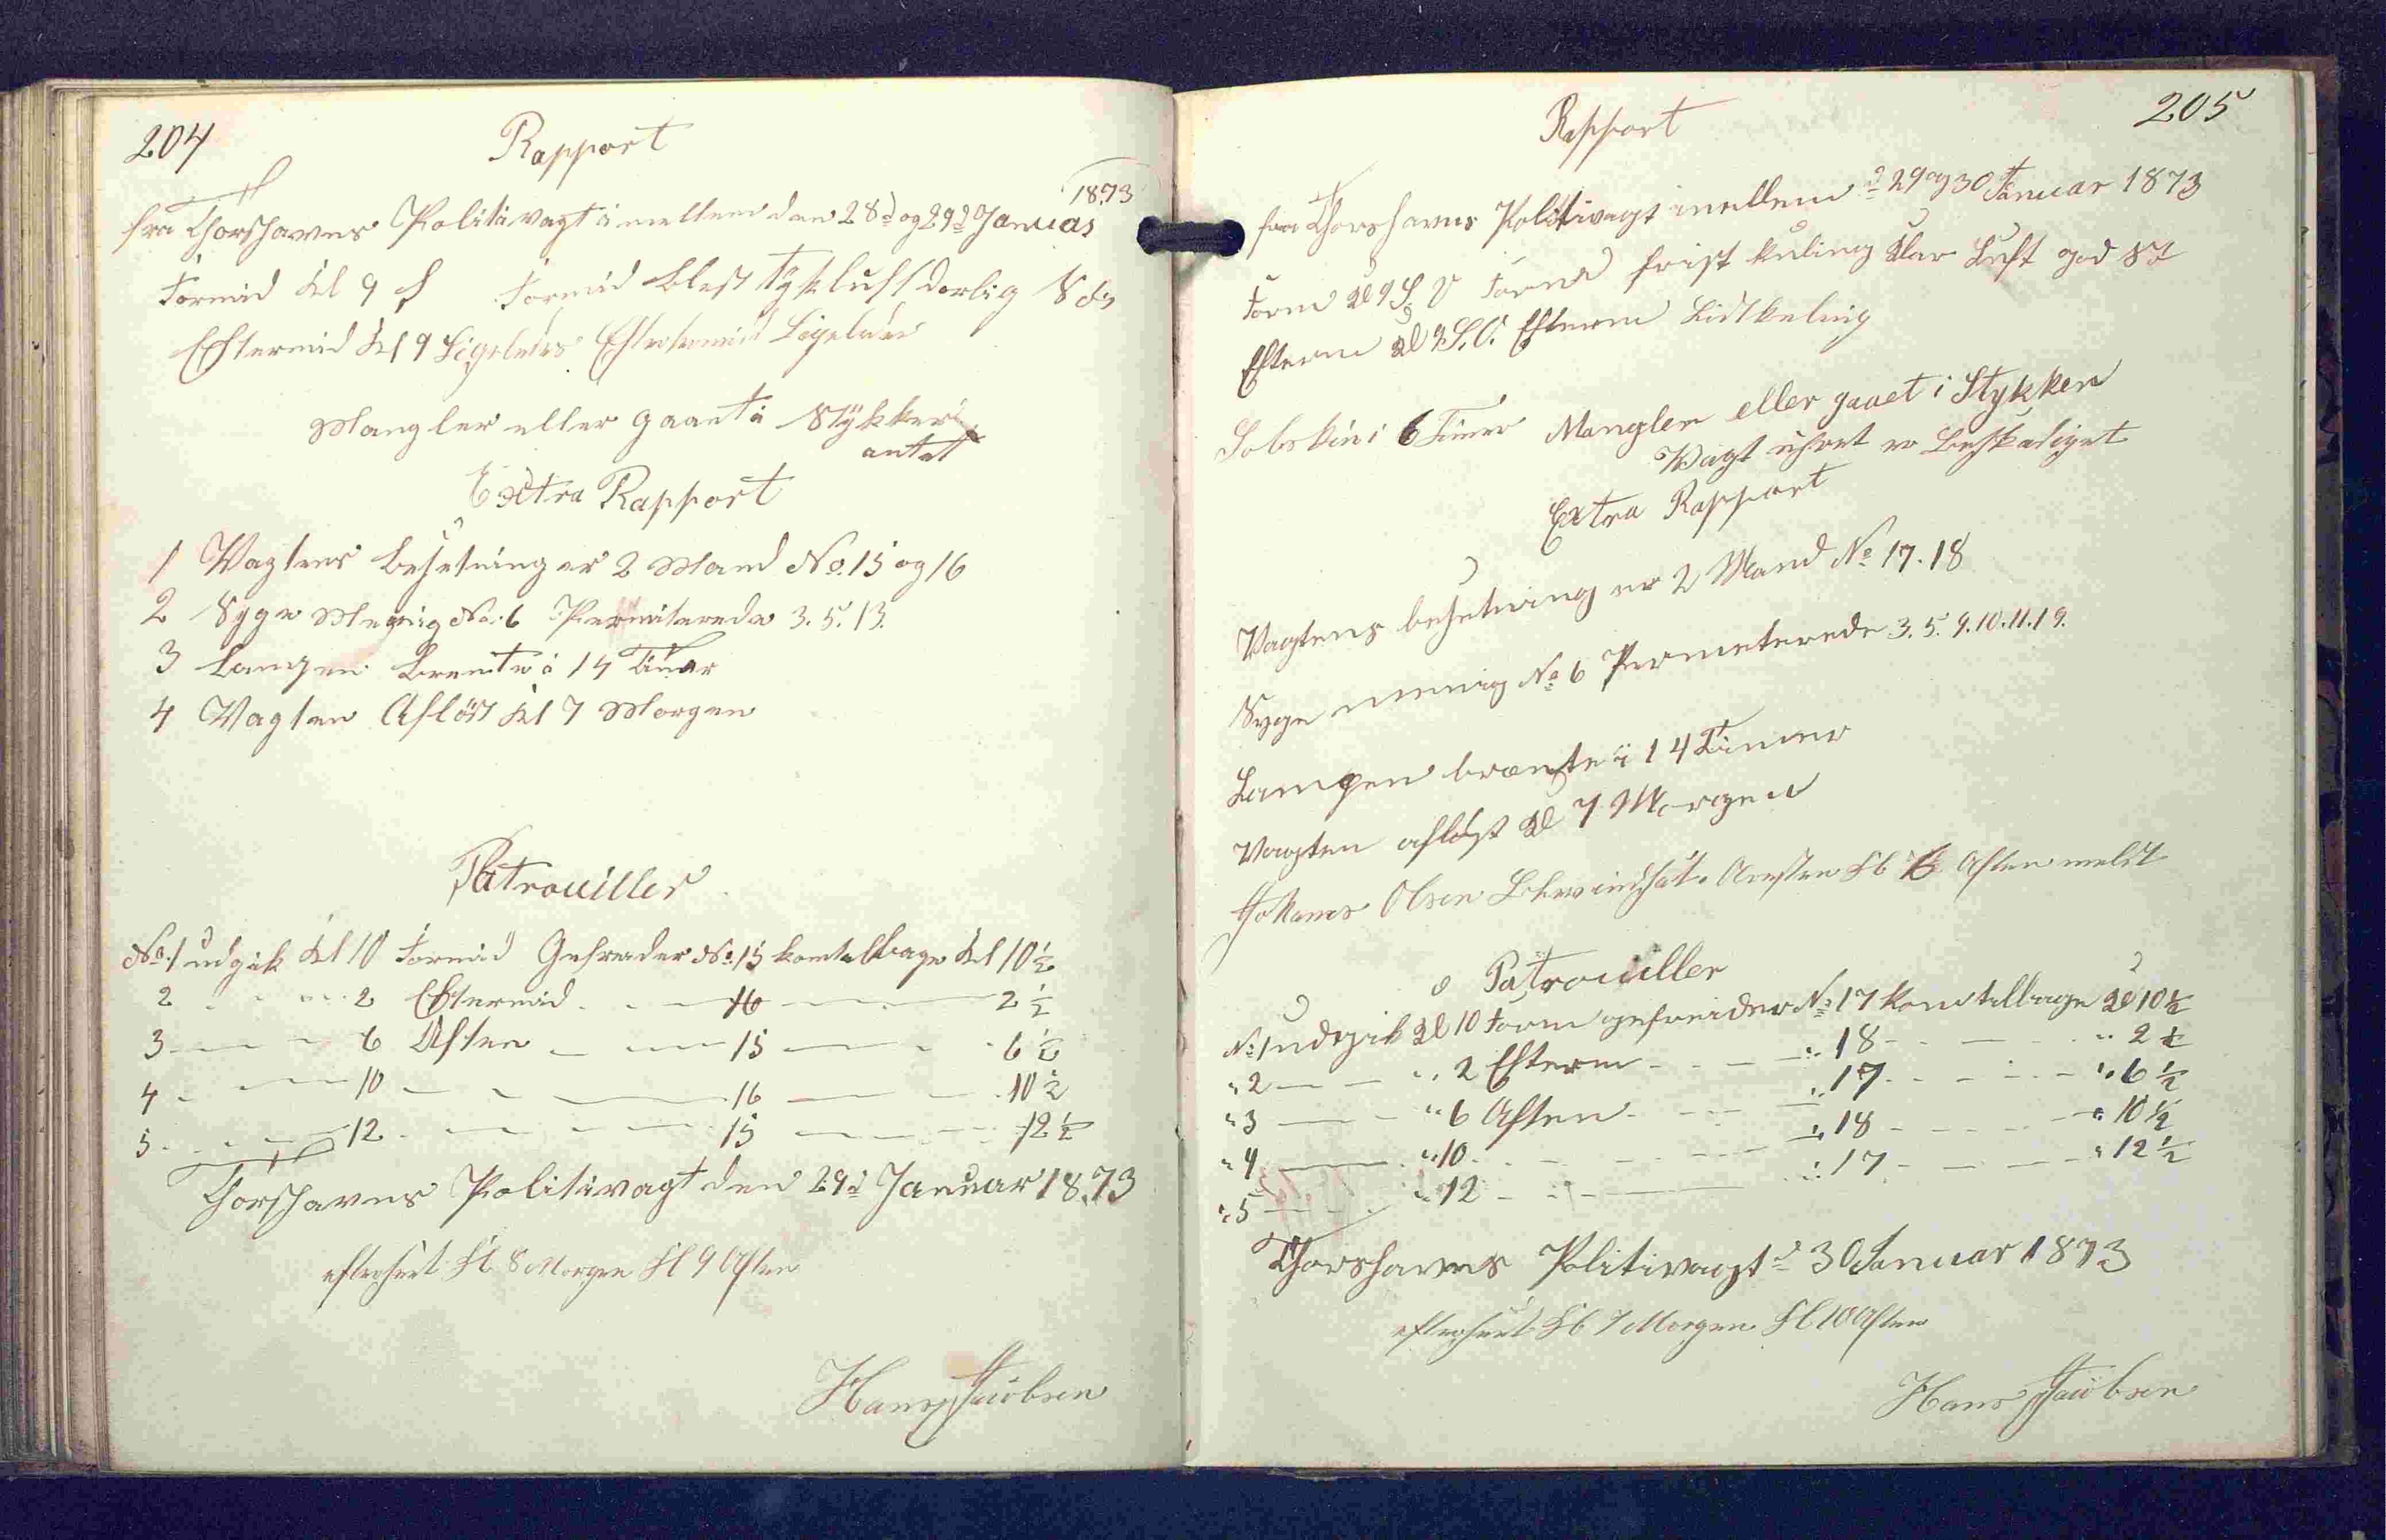 204
Rapport
1873
fra Thorshavns Politivagt imellem den 28d og 29d Januar
Formid Kl 9 S Formid blest tykluft dorlig
Eftermid Kl 9 Ligeledes Eftermid Ligeledes
Mangler eller gaaet i Stykker
intet
Extra Rapport
1 Vagtens besetning er 2 Mand No. 15 og 16
2 Syge Menig No. 6 Permiterede 3. 5. 13.
3 Lampen brente i 14 Timer
4 Vagten Aflöst Kl 7 Morgen
Patrouiller
No. 1 udgik Kl 10 Formid Gefreider No. 15 kom tilbage Kl 10 1/2
2 2 Eftermid 16 2 1/2
3 6 Aften 15 6 1/2
4 10 16 10 1/2
5 12 15 12 1/2
Thorshavns Politivagt den 29d Januar 1873
efterseet Kl 8 Morgen Kl 9 Aften
Hans Jacobsen
205
Rapport
fra Thorshavns Politivagt imellem d 29 og 30 Januar 1873
Form Kl 9 S. V Form frisk kuling klar Luft god
Efterm Kl 9 S. O. Efterm Lidt kuling
i 6 Timer Mangler eller gaaet i Stykker
Vagt uhret er beskadiget
Extra Rapport
Vagtens besetning er 2 Mand No 17. 18
Syge menig No 6 Permeterede 3. 5. 9. 10. 11. 19.
Lampen brænte i 14 Timer
Vagten aflöst Kl 7 Morgen
Johannes Olsen Aften meldt
Patrouiller
No 1 udgik Kl 10 Form gefreider No 17 kom tilbage Kl 10 1/2
" 2 " 2 Efterm " 18 " 2 1/2
" 3 " 6 Aften " 17 " 6 1/2
" 4 " 10 " 18 " 10 1/2
" 5 " 12 " 17 " 12 1/2
Thorshavns Politivagt d 30 Januar 1873
efterseet Kl 7 Morgen Kl 10 Aften
Hans Jacobsen